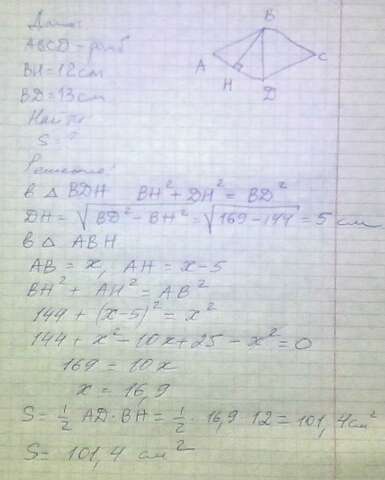 Дано:
ABCD - ромб
BH = 12 см
BD = 13 см
Найти
S - ?
Решение:
B
A
C
H
D
В △ BDH BH² + DH² = BD²
DH = √BD² - BH² = √169 - 144 = 5 см
В △ ABH
AB = x, AH = x - 5
BH² + AH² = AB²
144 + (x - 5)² = x²
144 + x² - 10x + 25 - x² = 0
169 = 10x
x = 16,9
S = 1/2 AD · BH = 1/2 · 16,9 · 12 = 101,4 см²
S = 101,4 см²